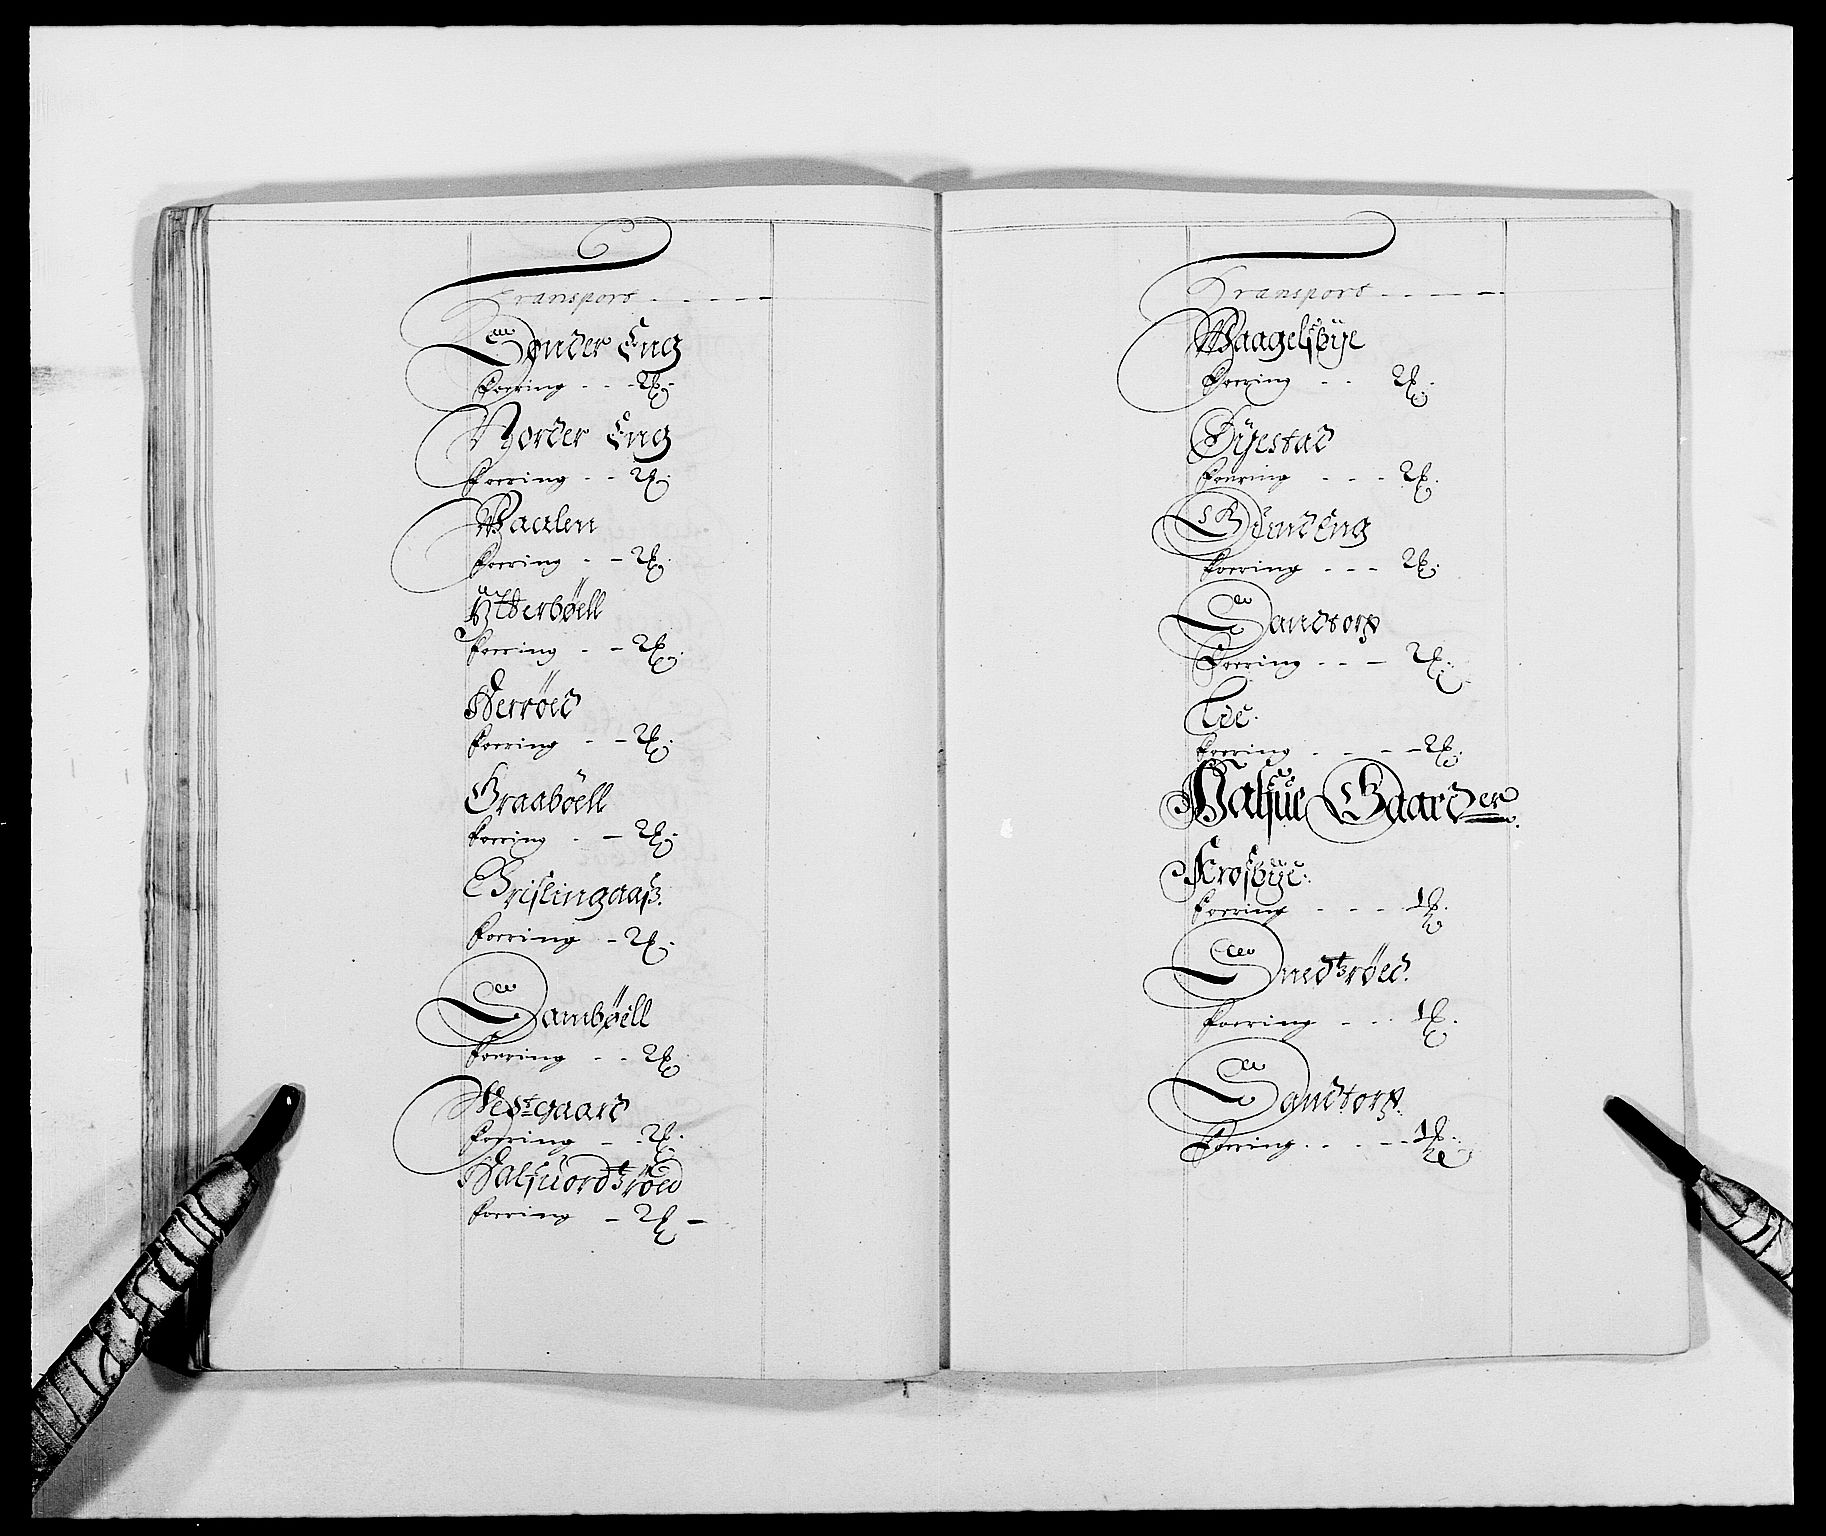 Transport
Sønder Eng
Foering - - - 2 ℔.
Norder Eng
Foering - - 2 ℔.
Waalen
Foering - - 2 ℔.
Ytterbøell
Foering - - 2 ℔.
Herrøed
Foering - - 2 ℔.
Graabøell
Foering - - 2 ℔.
Grislingaaß.
Foering - 2 ℔.
Sambøell
Foering - - 2 ℔.
Westgaard
Foering - - 2 ℔.
Halfuordtzrøed
Foering - 2 ℔ -
Transport
Waagelsbÿe
Foering - - 2 ℔.
Bÿestad
Foering - - - 2 ℔.
Grindeng
Foering - - - 2 ℔.
Sandtorp
Foering - - - 2 ℔.
Lee.
Foering - - - - 2 ℔.
Halfue Gaarder.
Krosbÿe.
Foering - - - - 1 ℔.
Smedtzrøed.
Foering - - - 1 ℔.
Sandtorp.
Foering - - - - 1 ℔.